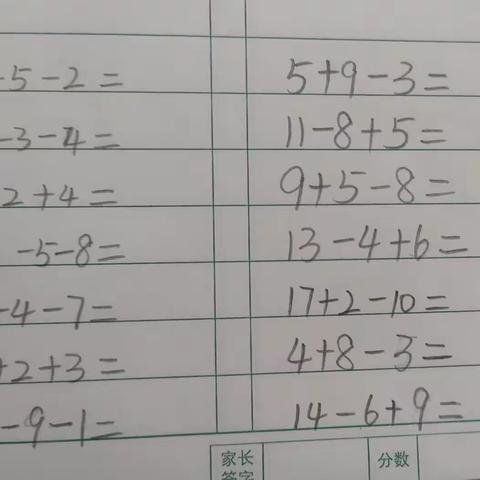 -5-2=
5+9-3=
-3-4=
11-8+5=
2+4=
9+5-8=
-5-8=
13-4+6=
-4-7=
17+2-10=
+2+3=
4+8-3=
-9-1=
14-6+9=
家长
签字
分数